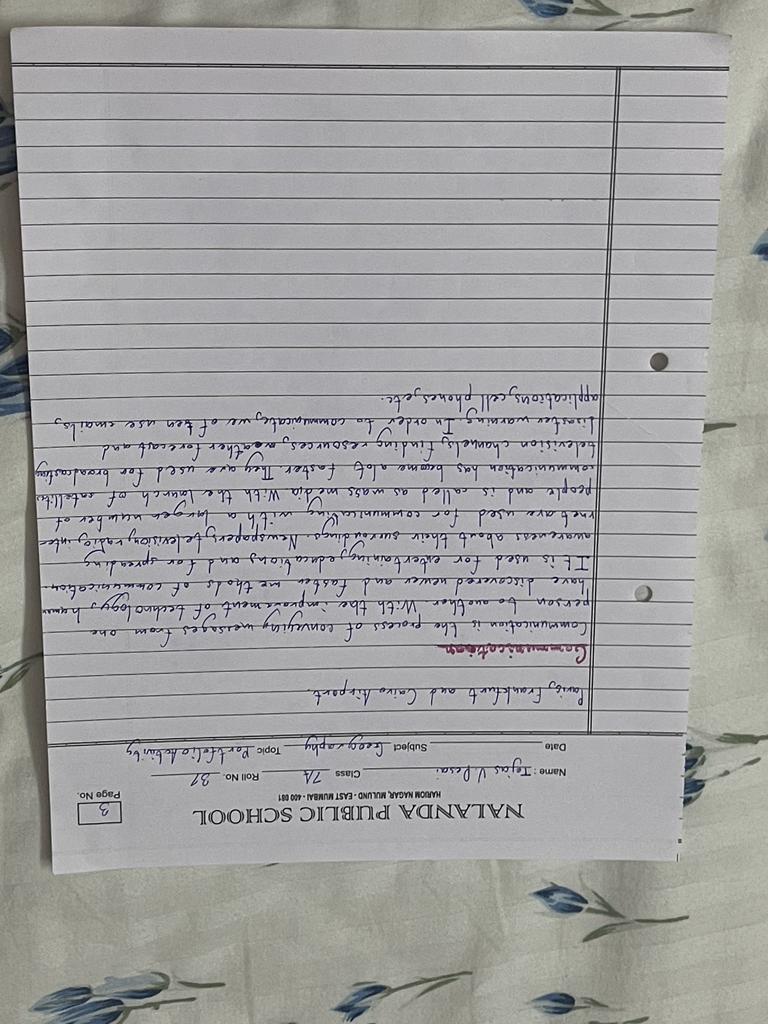 NALANDA PUBLIC SCHOOL
HARIOM NAGAR, MULUND - EAST MUMBAI - 400 081
3
Page No.
Name : Tejas V. Desai Class 7A Roll No. 37
Date Subject Geography Topic Portfolio Activity
Paris, Frankfurt and Cairo Airport.
Communication
Communication is the process of conveying messages from one
person to another. With the improvement of technology, human
have discovered newer and faster methods of communication.
It is used for entertaining, educations and for spreading
awareness about their surroundings. Newspapers, television, radio, inter
rnet are used for communicating with a larger number of
people and is called as mass media. With the launch of satellite
communication has become alot faster. They are used for broadcasting
television channels, finding resources, weather forecast and
disaster warning. In order to communicate, we often use emails,
applications, cell phones, etc.